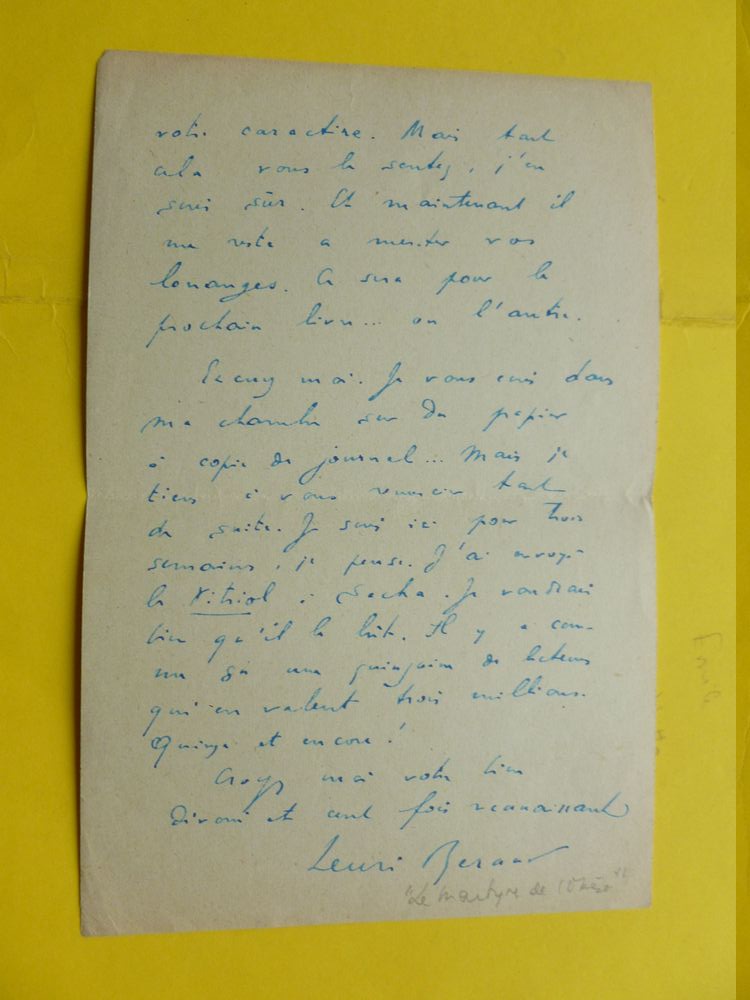 votre caractère. Mais tout
cela vous le sentez, j'en
suis sûr. Et maintenant il
me reste a meriter vos
louanges. Ce sera pour le
prochain livre... ou l'autre.
Excusez moi. Je vous écris dans
ma chambre sur du papier
à copie de journal... Mais je
tiens à vous remercier tout
de suite. Je suis ici pour trois
semaines, je pense. J'ai envoyé
le Vitriol à Sacha. Je voudrais
bien qu'il le lût. Il y a com-
me ça une quinzaine de lecteurs
qui en valent trois millions.
Quinze et encore!
Croyez moi votre bien
dévoué et cent fois reconnaissant
Henri Beraud
"Le martyre de l'Obèse"